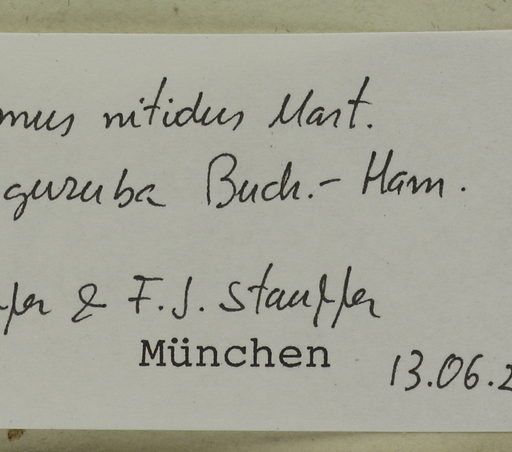 mus nitidus Mart.
guzuba Buch.-Ham.
& F.J. Stauffer
München
13.06.2